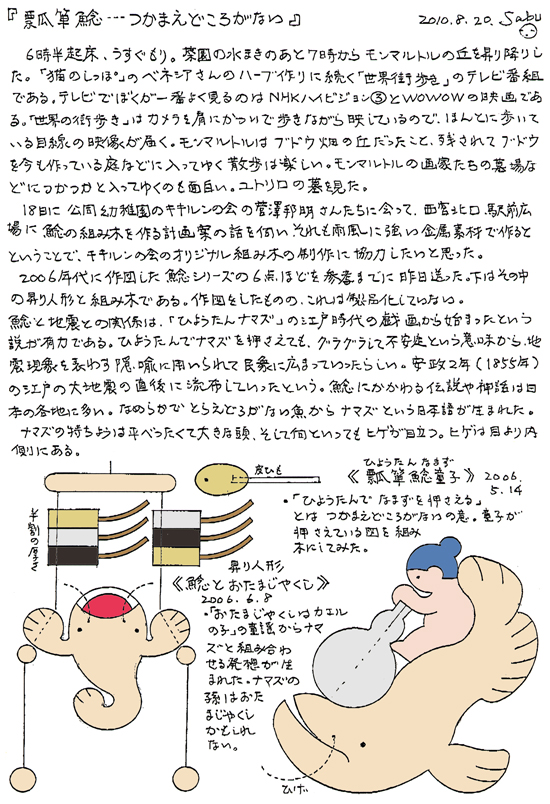 『瓢箪鯰…つかまえどころがない』
2010.8.20. Sabu
6時半起床、うすぐもり。菜園の水まきのあと7時からモンマルトルの丘を昇り降りし
た。「猫のしっぽ」のベネシアさんのハーブ作りに続く「世界街歩き」のテレビ番組
である。テレビでぼくが一番よく見るのはNHKハイビジョン③とWOWOWの映画であ
る。「世界の街歩き」はカメラを肩にかついで歩きながら映しているので、ほんとに歩いて
いる目線の映像が届く。モンマルトルはブドウ畑の丘だったこと、残されてブドウ
を今も作っている庭などに入ってゆく散歩は楽しい。モンマルトルの画家たちの墓場な
どにつかつかと入ってゆくのも面白い。ユトリロの墓を見た。
18日に公同幼稚園のキチルンの会の菅澤邦明さんたちに会って、西宮北口、駅前広
場に鯰の組み木を作る計画案の話を伺いそれも雨風に強い金属素材で作ると
ということで、キチルンの会のオリジナル組み木の制作に協力したいと思った。
2006年代に作図した鯰シリーズの6点ほどを参考までに昨日送った。下はその中
の昇り人形と組み木である。作図をしたものの、これは製品化していない。
鯰と地震との関係は、「ひょうたんナマズ」の江戸時代の戯画から始まったという
説が有力である。ひょうたんでナマズを押さえても、グラグラして不安定という意味から、地
震現象を表わす隠喩に用いられて民衆に広まっていったらしい。安政2年(1855年)
の江戸の大地震の直後に流布していったという。鯰にかかわる伝説や神話は日
本の各地に多い。なめらかでとらえどころがない魚からナマズという日本語が生まれた。
ナマズの特ちょうは平べったくて大きな頭、そして何といってもヒゲが目立つ。ヒゲは目より内
側にある。
皮ひも
半割の厚さ
昇り人形
《鯰とおたまじゃくし》
2006.6.8
・「おたまじゃくしはカエル
の子」の童謡からナマ
ズと組み合わ
せる発想が生
まれた。ナマズの
孫はおた
まじゃくし
かもしれ
ない。
ひょうたん なまず
《瓢箪鯰童子》 2006.
5.14
・「ひょうたんでなまずを押さえる」
とはつかまえどころがないの意。童子が
押さえている図を組み
木にしてみた。
ひげ